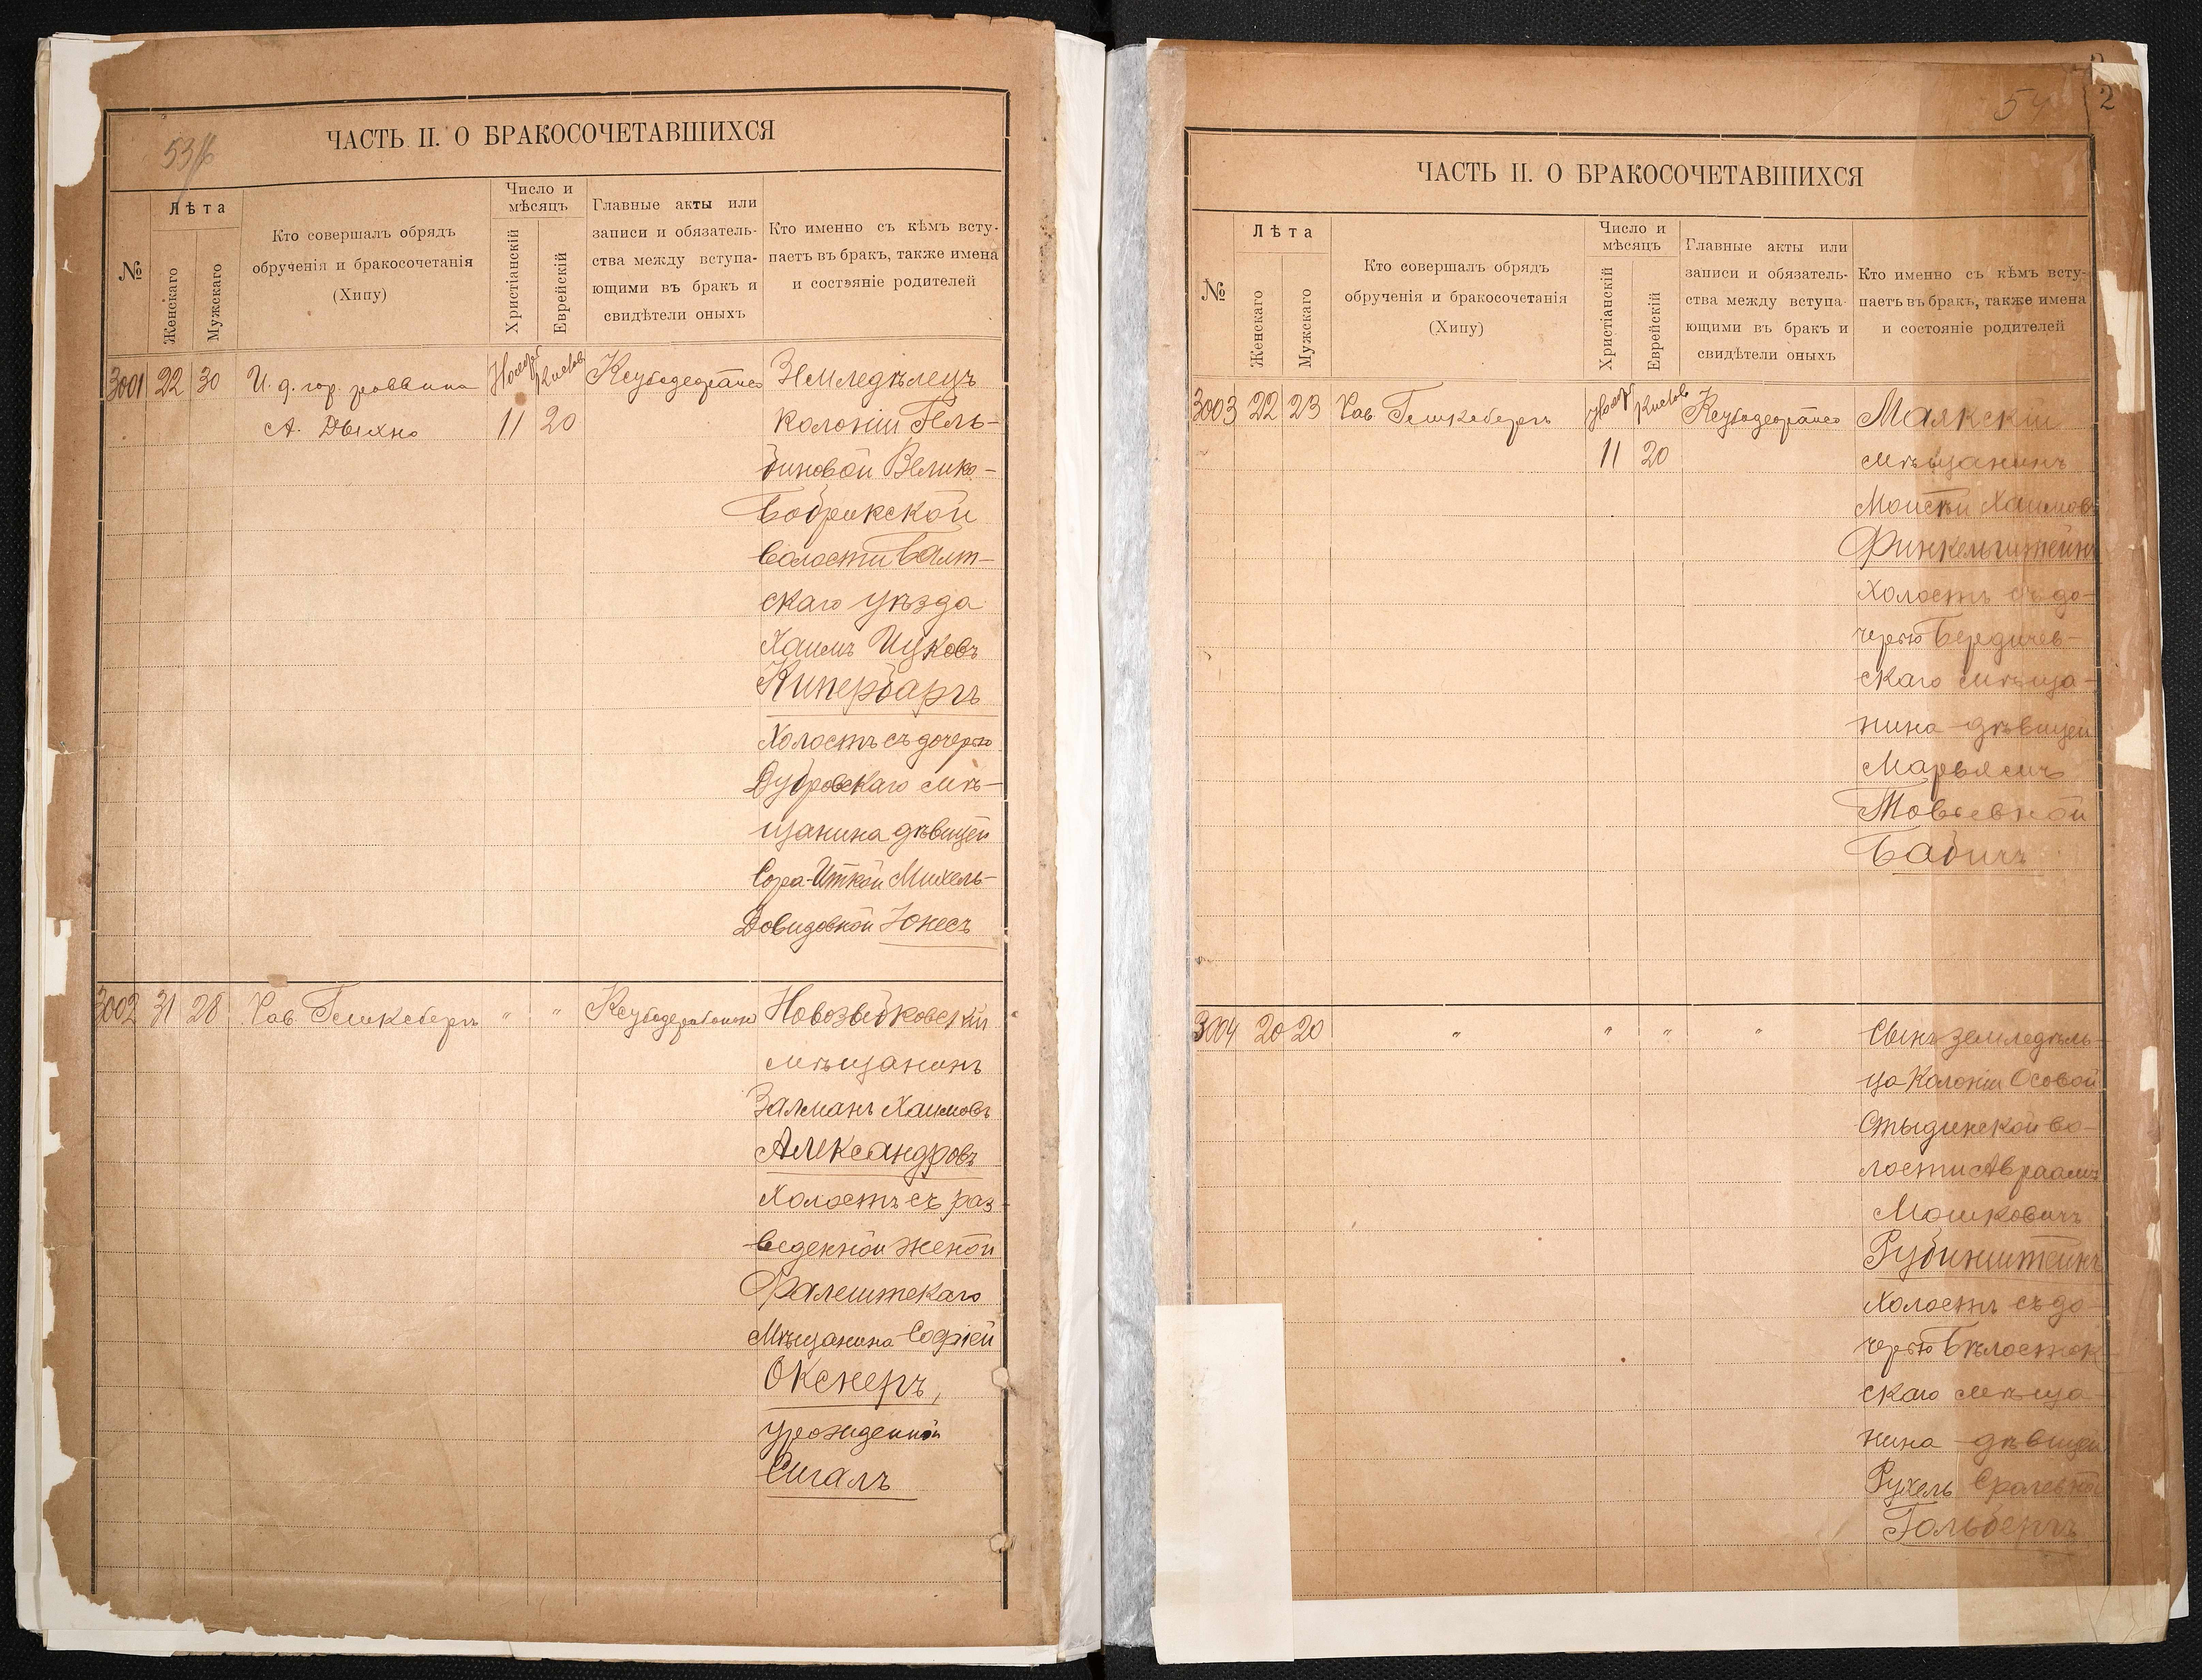 ЧАСТЬ II. О БРАКОСОЧЕТАВШИХСЯ
№
Лѣта
Женскаго
Мужскаго
Кто совершалъ обрядъ
обрученія и бракосочетанія
(Хипу)
Число и
мѣсяцъ
Христіанскій
Еврейскій
Главные акты или
записи и обязатель-
ства между вступа-
ющими въ бракъ и
свидѣтели оныхъ
Кто именно съ кѣмъ всту-
паетъ въ бракъ, также имена
и состояніе родителей
3001 22 30
И. д. гор. раввина
А. Дыхно
Ноябр Кислов
11 20
Землѣделецъ
колоніи Гель-
биновой Велико-
Бобрикской
волости Балт-
скаго уѣзда
Хаимъ Ицковъ
Кипербаргъ
холостъ съ дочерью
Дубровскаго мѣ-
щанина дѣвицей
Сора-Иткой Михель-
Довидовной Юкесъ
3002 31 28
Сав. Гешкебергъ
" "
Новозыбковскій
мѣщанинъ
Залманъ Хаимовъ
Александровъ
холостъ съ раз-
веденной женой
Фалештскаго
мѣщанина Софіей
Окснеръ,
урожденной
Сигалъ
54
2
ЧАСТЬ II. О БРАКОСОЧЕТАВШИХСЯ
№
Лѣта
Женскаго
Мужскаго
Кто совершалъ обрядъ
обрученія и бракосочетанія
(Хипу)
Число и
мѣсяцъ
Христіанскій
Еврейскій
Главные акты или
записи и обязатель-
ства между вступа-
ющими въ бракъ и
свидѣтели оныхъ
Кто именно съ кѣмъ всту-
паетъ въ бракъ, также имена
и состояніе родителей
3003 22 23
Сав. Гешкебергъ
Ноябр Кислов
11 20
Маякскій
мѣщанинъ
Моисѣй Хаимовъ
Финкельштейнъ
холостъ съ до-
черью Бердичев-
скаго мѣща-
нина дѣвицей
Марьясъ
Товьевной
Бабичъ
3004 20 20
" " " "
Сынъ земледѣль-
ца колоніи Осовой
Стыдинской во-
лости Авраамъ
Мошковичъ
Рубинштейнъ
холостъ съ до-
черью Бѣлосток-
скаго мѣща-
нина дѣвицей
Рухель Сролевной
Гольбергъ